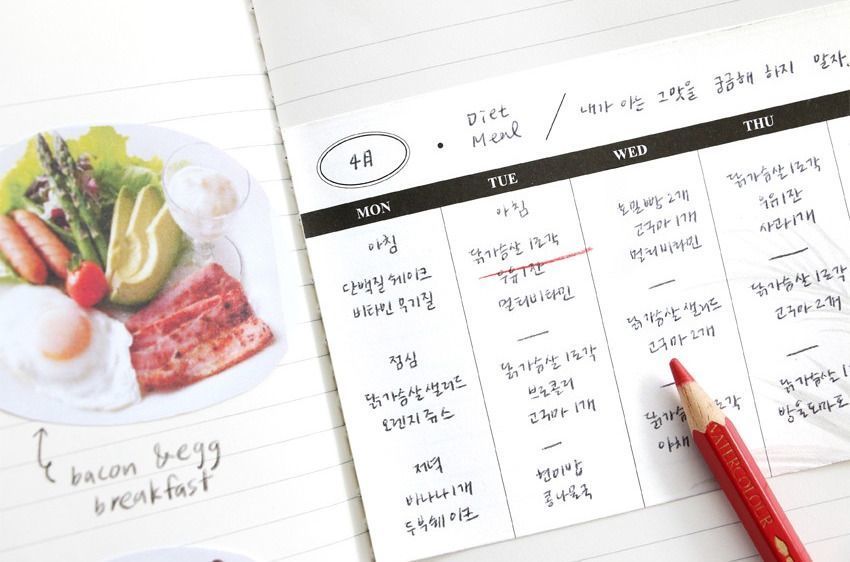 4月
• Diet
Meal
/ 내가 아는 그맛을 궁금해 하지 말자.
MON
TUE
WED
THU
아침
단백질 쉐이크
비타민 무기질
점심
닭가슴살 샐러드
오렌지 쥬스
저녁
바나나1개
두부쉐이크
아침
닭가슴살 1조각
우유1잔
멀티비타민
—
닭가슴살 1조각
브로콜리
고구마 1개
—
현미밥
콩나물국
호밀빵 2개
고구마 1개
멀티비타민
—
닭가슴살 샐러드
고구마 2개
—
닭가 조각
야채
닭가슴살 1조각
우유1잔
사과1개
—
닭가슴살 1조각
고구마 2개
—
닭가슴살 1조
방울토마토
bacon & egg
breakfast
WATERCOLOUR